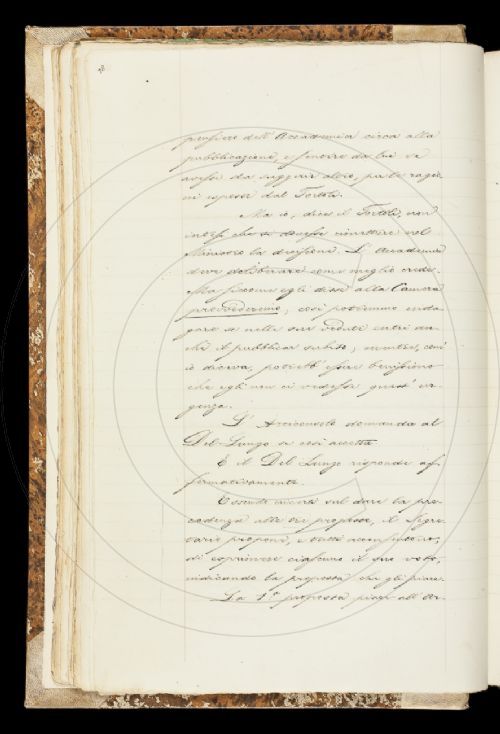 pensiero dell'Accademia circa alla
pubblicazione, e sentire da lui se
avesse da suggerir altro, per le ragio-
ni esposte dal Tortoli.
Ma io, dice il Tortoli, non
intesi che si dovesse rimettere nel
Ministro la decisione. L'Accademia
deve deliberare come meglio crede.
Ma siccome egli disse alla Camera
provvederemo, così potremmo inda-
gare se nelle sue vedute entri an-
che il pubblicar subito; mentre, com'
io diceva, potrebb'essere benissimo
che egli non ci vedesse quest'ur-
genza.
L'Arciconsolo domanda al
Del-Lungo se così accetta
E il Del Lungo risponde af-
fermativamente.
Essendo incerti sul dare la pre-
cedenza alle tre proposte, il Segre-
tario propone, e tutti acconsentono,
di esprimere ciascuno il suo voto,
indicando la proposta che gli piace.
La 1ª proposta piace all'Ar-